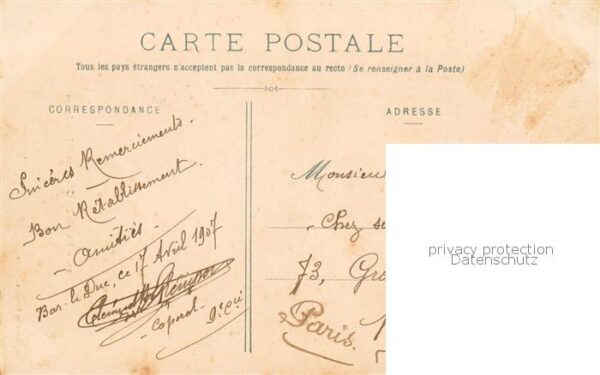 CARTE POSTALE
Tous les pays étrangers n'acceptent pas la correspondance au recto (Se renseigner à la Poste)
CORRESPONDANCE
ADRESSE
Sincères Remerciements.
Bon Rétablissement.
- Amitiés -
Bar-le-Duc, ce 17 Avril 1907
- Caporal -
9e Cie
Monsieur
Chez
73, Gre
Paris.
privacy protection
Datenschutz